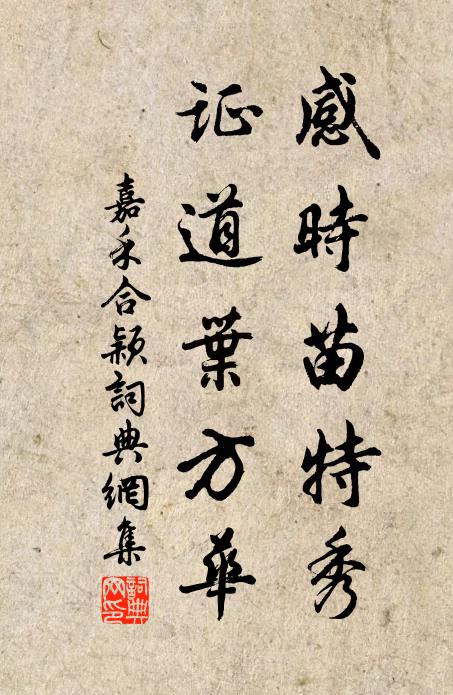 感時苗特秀
证道葉方華
嘉禾合颖詞典網集
詞典网印